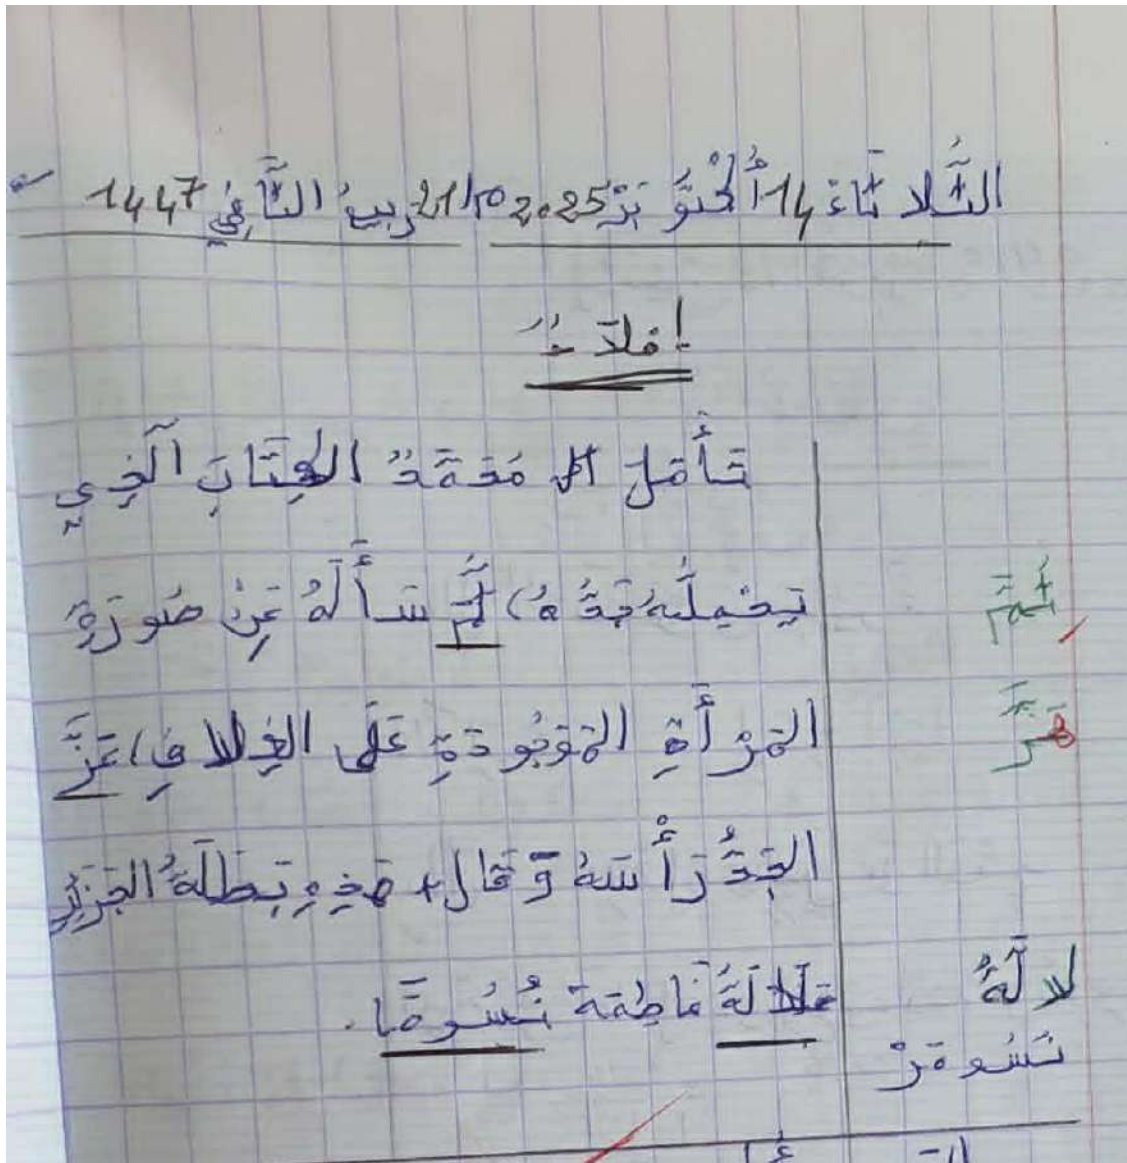 الثُّلاثَاءَ 14 أُكْتُوبَرْ 2025 21 رَبِيعُ الثَّانِي 1447
إملاءُ
تَأَمَّلَ مُحَمَّدٌ الكِتَابَ الَّذِي
يَحْمِلُهُ جَدُّهُ، ثُمَّ سَأَلَهُ عَنْ صُورَةِ
المَرْأَةِ المَوْجُودَةِ عَلَى الغِلافِ،
الجَدُّ رَأْسَهُ وَقَال، هَذِهِ بَطَلَةُ الجَزَائِرِ
لالَةُ فَاطِمَة نْسُومَا.
ثُمَّ
هَزَّ
لالَّةُ
نَسُومَرْ